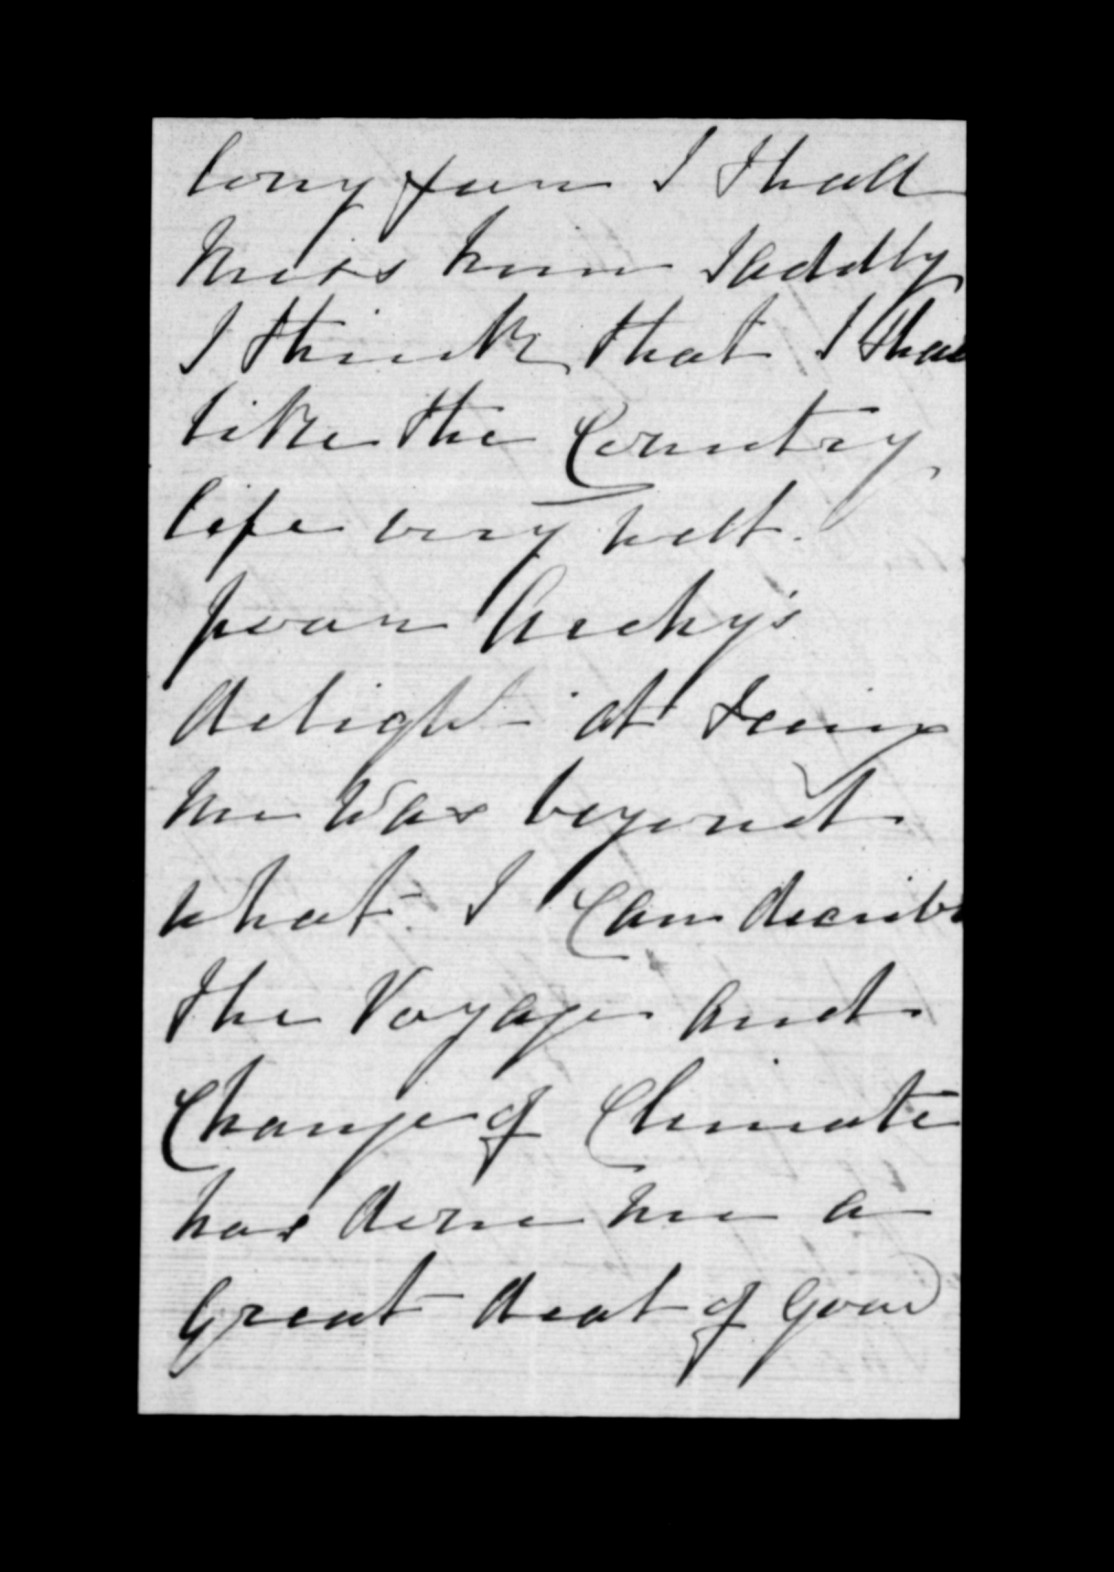 long for I shall
miss him saddly
I think that I shall
like the Country
life very well.
poor Archy's
delight at seeing
me was beyond
what I can decribe
the Voyage and
Change of Climate
has done me a
great deal of good